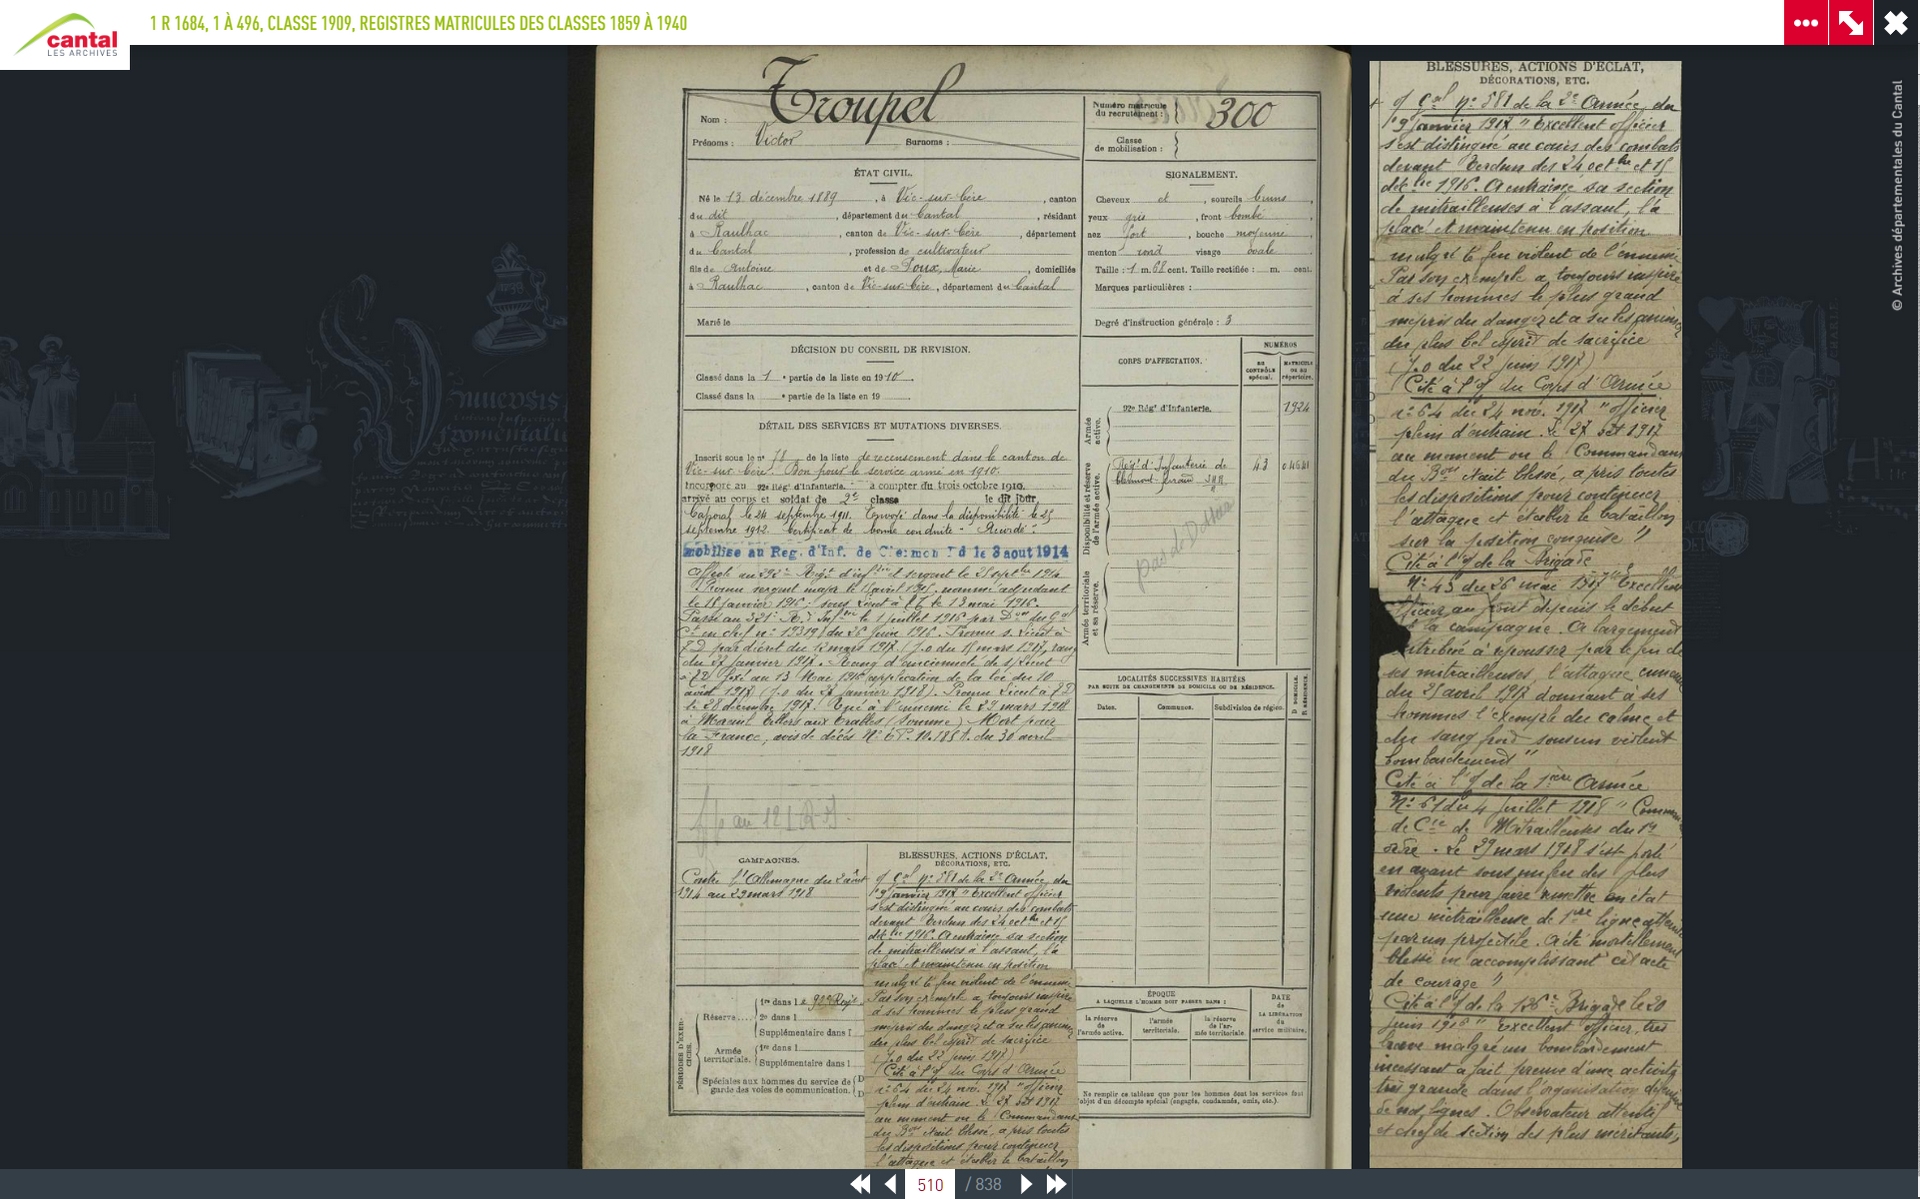 1 R 1684, 1 À 496, CLASSE 1909, REGISTRES MATRICULES DES CLASSES 1859 À 1940
cantal
LES ARCHIVES
© Archives départementales du Cantal
Nom : Troupel
Prénoms : Victor Surnoms :
Numéro matricule du recrutement : 300
Classe de mobilisation :
ÉTAT CIVIL.
Né le 13 décembre 1889, à Vic-sur-Cère, canton
du dit, département du Cantal, résidant
à Raulhac, canton de Vic-sur-Cère, département
du Cantal, profession de cultivateur
fils de Antoine et de Doux, Marie, domiciliés
à Raulhac, canton de Vic-sur-Cère, département du Cantal
Marié le
SIGNALEMENT.
Cheveux et, sourcils bruns,
yeux gris, front bombé,
nez fort, bouche moyenne,
menton rond visage ovale.
Taille : 1 m. 68 cent. Taille rectifiée : m. cent.
Marques particulières :
Degré d'instruction générale : 3
DÉCISION DU CONSEIL DE REVISION.
Classé dans la 1e partie de la liste en 1910.
Classé dans la e partie de la liste en 19 .
DÉTAIL DES SERVICES ET MUTATIONS DIVERSES.
Inscrit sous le n° 78 de la liste de recensement dans le canton de
Vic-sur-Cère. Bon pour le service armé en 1910.
Incorporé au 92e Rég' d'Infanterie. à compter du trois octobre 1910.
arrivé au corps et soldat de 2e classe le dit jour.
Caporal le 24 septembre 1911. Envoyé dans la disponibilité le 25
septembre 1912. Certificat de bonne conduite "Accordé".
mobilisé au Reg. d'Inf. de Clermon Fd le 3 aout 1914
Promu sergent major le avril 1915. nommé adjudant
le 18 janvier 1916; sous Lieut à T.T. le 13 mai 1916.
Passé au 321e R. Infrie le 1 juillet 1916 par Don du Gal
Ct en chef n° du 26 juin 1916. Promu s. Lieut à
T.D. par décret du mars 1917. (J.o du mars 1917, rang
du 27 janvier 1917. Rang d'ancienneté de s/Lieut
à T.D. fixé au 13 Mai 1916 application de la loi du 10
août 1917 (J.o du janvier 1918). Promu Lieut à T.D
le 28 décembre 1917. Tué à l'ennemi le 29 mars 1918
à Mesnil (Somme) Mort pour
la France, avis de décès N° du 30 avril
1918
CORPS D'AFFECTATION.
NUMÉROS
AU CONTRÔLE spécial.
MATRICULE OU AU répertoire.
Armée active.
92e Rég' d'Infanterie. 1924
Disponibilité et réserve de l'armée active.
Rég' d'Infanterie de
Clermont-Ferrand
43
Armée territoriale et sa réserve.
LOCALITÉS SUCCESSIVES HABITÉES
PAR SUITE DE CHANGEMENTS DE DOMICILE OU DE RÉSIDENCE.
Dates. Communes. Subdivision de région. D DOMICILE. R RÉSIDENCE.
CAMPAGNES.
Contre l'Allemagne du 3 août
1914 au 29 mars 1918
BLESSURES, ACTIONS D'ÉCLAT,
DÉCORATIONS, ETC.
PÉRIODES D'EXERCICES.
Réserve.... 1re dans l e 92e Regt
2e dans l
Supplémentaire dans l
Armée territoriale. 1re dans l
Supplémentaire dans l
Spéciales aux hommes du service de garde des voies de communication.
ÉPOQUE
A LAQUELLE L'HOMME DOIT PASSER DANS :
la réserve de l'armée active.
l'armée territoriale.
la réserve de l'armée territoriale.
DATE de LA LIBÉRATION du service militaire.
Ne remplir ce tableau que pour les hommes dont les services font
l'objet d'un décompte spécial (engagés, condamnés, omis, etc.).
BLESSURES, ACTIONS D'ÉCLAT,
DÉCORATIONS, ETC.
O/ Gal N° 581 de la 2e Armée du
19 janvier 1917 "Excellent officier
s'est distingué au cours des combats
devant Verdun des 24 octbre et 15
déc bre 1916. A entrainé sa section
de mitrailleuses à l'assaut, l'a
placé et maintenu en position
malgré le feu violent de l'ennemi
Par son exemple a toujours inspiré
à ses hommes le plus grand
mépris du danger et a su les animer
du plus bel esprit de sacrifice
(J.o du 22 juin 1917)
Cité à l'o/ du Corps d'Armée
n° 64 du 24 nov. 1917 "officier
plein d'entrain. Le 27 1917
au moment ou le Commandant
du Bon était blessé, a pris toutes
les dispositions pour continuer
l'attaque et établir le bataillon
sur la position conquise"
Cité à l'o/ de la Brigade
N° 43 du 26 mai 1917 "Excellent
officier au front depuis le début
de la campagne. A largement
contribué à repousser par le feu de
ses mitrailleuses, l'attaque ennemie
du 25 avril 1917 donnant à ses
hommes l'exemple du calme et
du sang froid sous un violent
bombardement"
Cité à l'o/ de la 1ère Armée
N° 61 du 4 juillet 1918 "Comman
de Cie de Mitrailleuses du
ordre. Le 29 mars 1918 s'est porté
en avant sous un feu des plus
violents pour faire remettre en état
une mitrailleuse de 1ère ligne atteinte
par un projectile. A été mortellement
blessé en accomplissant cet acte
de courage"
Cité à l'o/ de la Brigade le 20
juin 1916 "Excellent officier, très
brave malgré un bombardement
incessant a fait preuve d'une activité
très grande dans l'organisation défensive
de nos lignes. Observateur attentif
et chef de section des plus méritants,
510 / 838